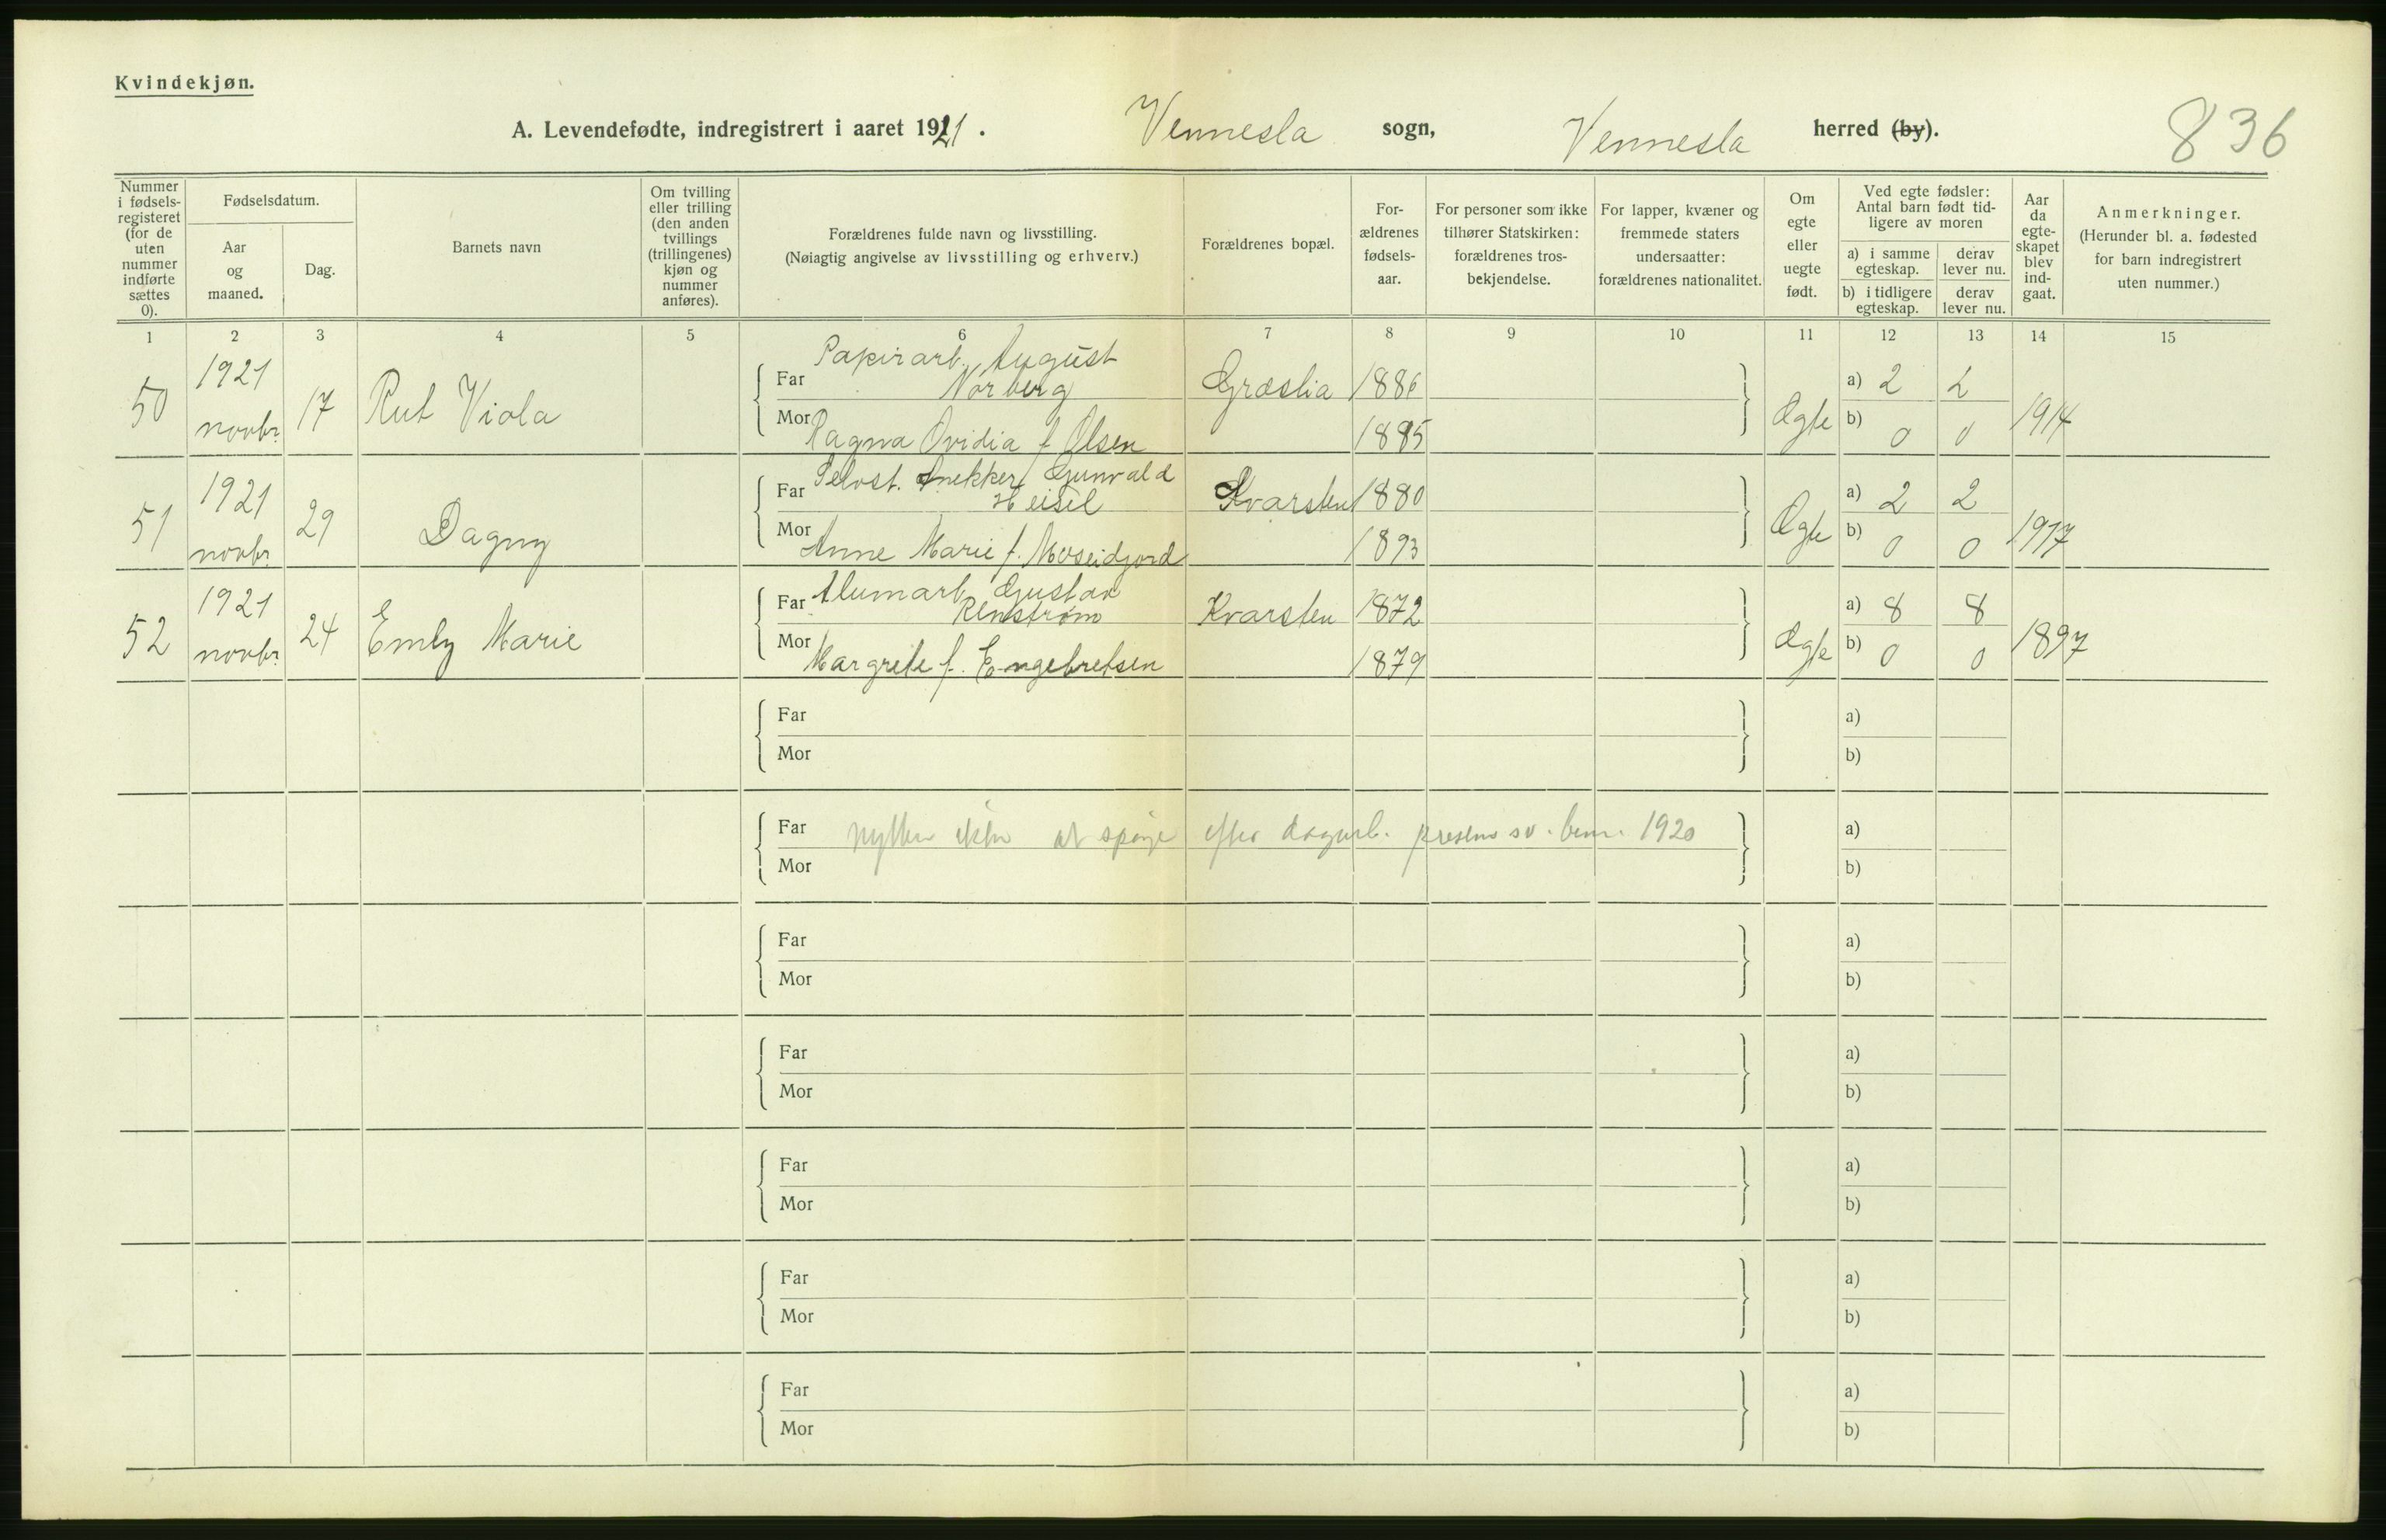 Kvindekjøn.
A. Levendefødte, indregistrert i aaret 1921. Vennesla sogn, Vennesla herred (by). 836
Nummer i fødselsregisteret (for de uten nummer indførte sættes 0).
Fødselsdatum.
Aar og maaned.
Dag.
Barnets navn
Om tvilling eller trilling (den anden tvillings (trillingenes) kjøn og nummer anføres).
Forældrenes fulde navn og livsstilling.
(Nøiagtig angivelse av livsstilling og erhverv.)
Forældrenes bopæl.
Forældrenes fødselsaar.
For personer som ikke tilhører Statskirken: forældrenes trosbekjendelse.
For lapper, kvæner og fremmede staters undersaatter: forældrenes nationalitet.
Om egte eller uegte født.
Ved egte fødsler: Antal barn født tidligere av moren
a) i samme egteskap. derav lever nu.
b) i tidligere egteskap. derav lever nu.
Aar da egteskapet blev indgaat.
Anmerkninger.
(Herunder bl. a. fødested for barn indregistrert uten nummer.)
1 2 3 4 5 6 7 8 9 10 11 12 13 14 15
50 1921 novbr. 17 Rut Viola
Far Papirarb. August Norberg Græslia 1886
Mor Ragna Ovidia f. Olsen 1885
Ægte a) 2 2 b) 0 0 1914
51 1921 novbr. 29 Dagny
Far Selvst. snekker Gunvald Heisel Kvarsten 1880
Mor Anne Marie f. Moseidjord 1893
Ægte a) 2 2 b) 0 0 1917
52 1921 novbr. 24 Emly Marie
Far Alumarb. Gustav Renstrøm Kvarsten 1872
Mor Margrete f. Engebretsen 1879
Ægte a) 8 8 b) 0 0 1897
Far a)
Mor b)
Far nytter ikke at spørje efter 1920 a)
Mor b)
Far a)
Mor b)
Far a)
Mor b)
Far a)
Mor b)
Far a)
Mor b)
Far a)
Mor b)